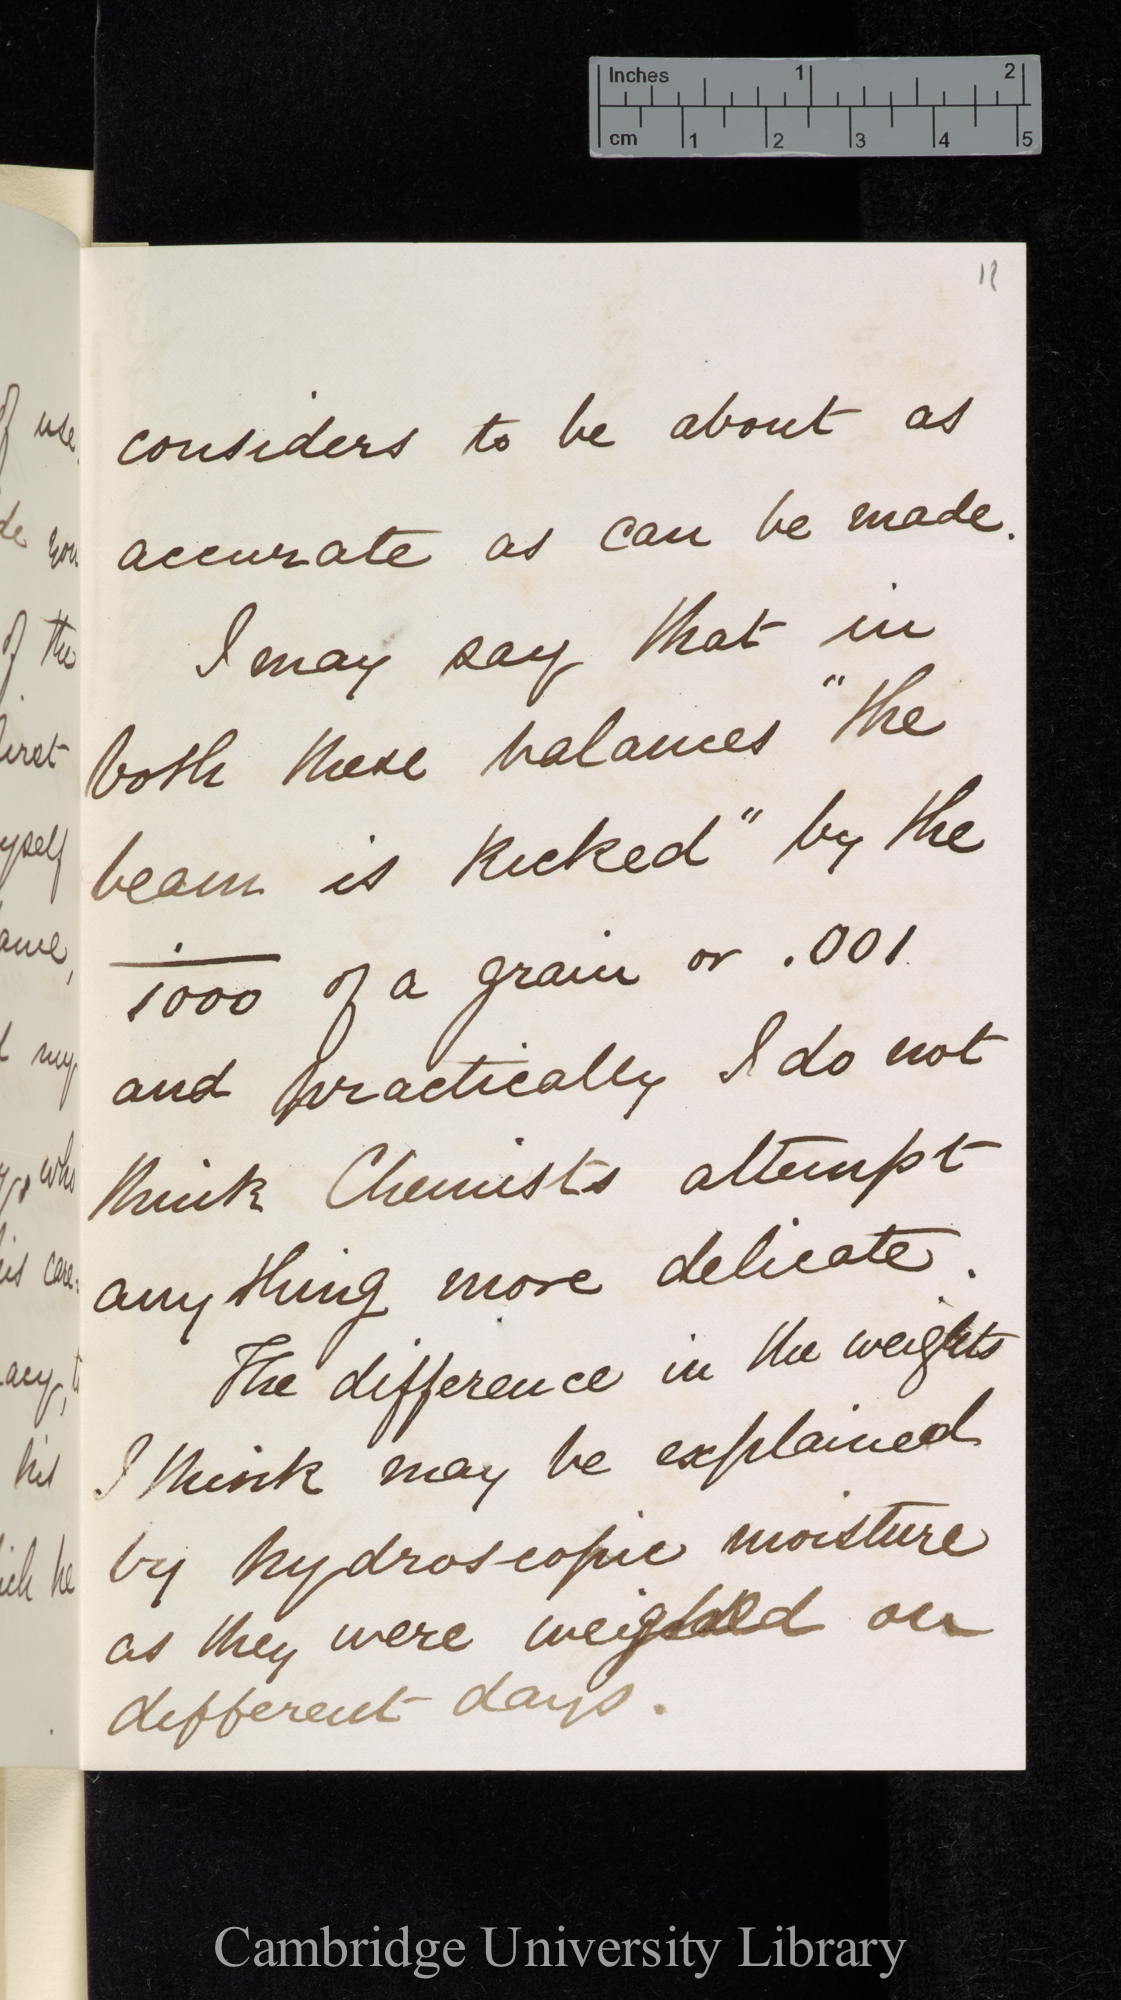 Inches 1 2
cm 1 2 3 4 5
considers to be about as
accurate as can be made.
I may say that in
both these balances "the
beam is kicked" by the
1/1000 of a grain or .001
and practically I do not
think Chemists attempt
anything more delicate.
The difference in the weights
I think may be explained
by hydroscopic moisture
as they were weighed on
different days.
of use
you
of the
yself
my
who
his care
his
he
Cambridge University Library